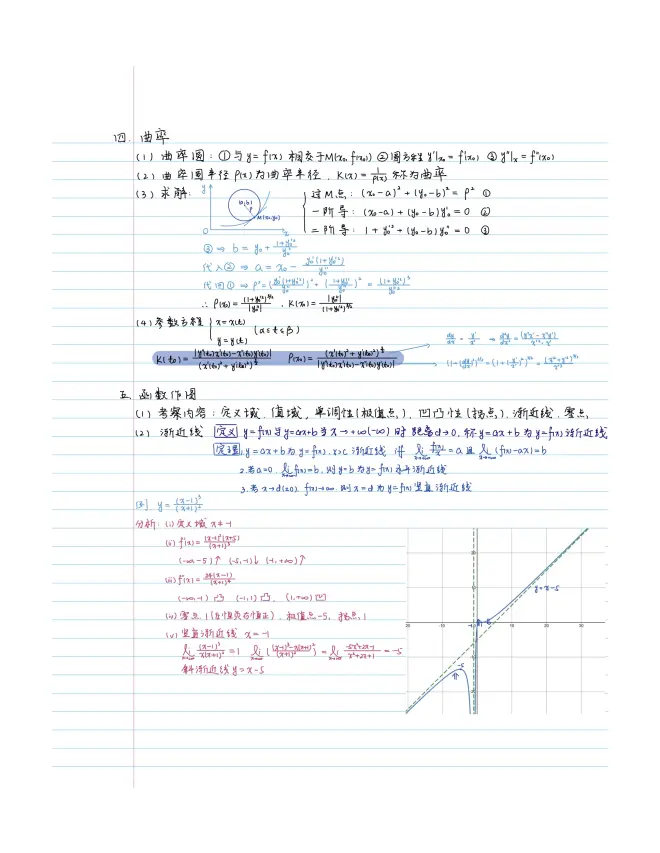 四. 曲率
(1) 曲率圆: ①与 y=f(x) 相交于M(x₀, f(x₀)) ②圆方程 y'|x₀ = f'(x₀) ③ y''|x = f''(x₀)
(2) 曲率圆半径 ρ(x) 为曲率半径, K(x) = 1/ρ(x) 称为曲率
(3) 求解:
y
(a,b)
ρ
M(x₀,y₀)
O
x
过M点: (x₀-a)² + (y₀-b)² = ρ² ①
一阶导: (x₀-a) + (y₀-b)y₀' = 0 ②
二阶导: 1 + y₀'² + (y₀-b)y₀'' = 0 ③
③ ⇒ b = y₀ + (1+y₀'²)/y₀''
代入② ⇒ a = x₀ - y₀'(1+y₀'²)/y₀''
代回① ⇒ ρ² = (y₀'(1+y₀'²)/y₀'')² + ((1+y₀'²)/y₀'')² = (1+y₀'²)³/y₀''²
∴ ρ(x₀) = (1+y₀'²)^{3/2}/|y₀''| , K(x₀) = |y₀''|/(1+y₀'²)^{3/2}
(4) 参数方程 { x=x(t) y=y(t) (α≤t≤β)
K(t₀) = |y''(t₀)x'(t₀)-x''(t₀)y'(t₀)|/(x'(t₀)²+y'(t₀)²)^{3/2} ρ(x₀) = (x'(t₀)²+y'(t₀)²)^{3/2}/|y''(t₀)x'(t₀)-x''(t₀)y'(t₀)|
dy/dx = y'/x' ⇒ d²y/dx² = (y''x'-x''y')/x'²·x'
(1+(dy/dx)²)^{3/2} = (1+(y'/x')²)^{3/2} = (x'²+y'²)^{3/2}/x'³
五. 函数作图
(1) 考察内容: 定义域, 值域, 单调性(极值点), 凹凸性(拐点), 渐近线, 零点
(2) 渐近线 定义 y=f(x)与y=ax+b当x→+∞(-∞)时 距离d→0, 称y=ax+b为y=f(x)渐近线
定理 1. y=ax+b为y=f(x), x>c 渐近线 iff lim x→+∞ f(x)/x = a 且 lim x→+∞ (f(x)-ax)=b
2. 若a=0, lim f(x)=b, 则y=b为y=f(x)水平渐近线
3. 若x→d(±0), f(x)→∞, 则x=d为y=f(x)竖直渐近线
例 y = (x-1)³/(x+1)²
分析: (i) 定义域 x≠-1
(ii) f'(x) = (x-1)²(x+5)/(x+1)³
(-∞,-5)↑ (-5,-1)↓ (-1,+∞)↑
(iii) f''(x) = 24(x-1)/(x+1)⁴
(-∞,-1) 凸 (-1,1) 凸, (1,+∞) 凹
(iv) 零点 1(左恒负右恒正), 极值点-5, 拐点 1
(v) 竖直渐近线 x=-1
lim x→∞ (x-1)³/x(x+1)² = 1 lim x→∞ ((x-1)³-x(x+1)²/(x+1)²) = lim x→∞ (-5x²+2x-1)/(x²+2x+1) = -5
斜渐近线 y=x-5
y=x-5
20
10
-20
-10
10
20
30
-5